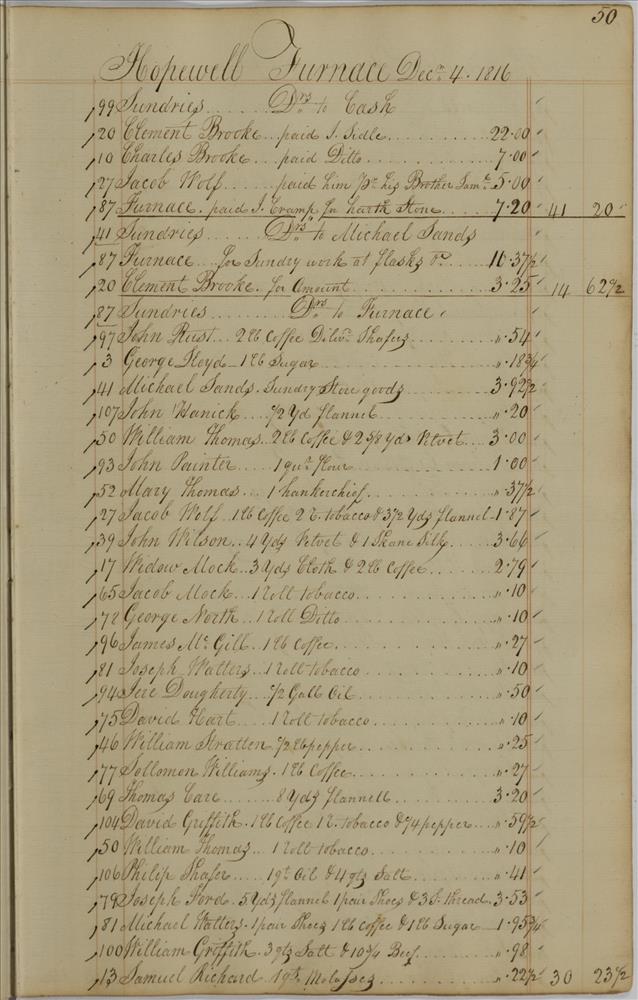 50
Hopewell Furnace Decr. 4. 1816
99 Sundries ...... Drs to Cash
20 Clement Brooke ... paid J. Sidle ........ 22.00
10 Charles Brooke ... paid Ditto ........ 7.00
27 Jacob Wolf ...... paid him pr. his Brother Saml. 5.00
87 Furnace. paid J. Cramp for harth Stone ..... 7.20 41 20
41 Sundries ...... Drs to Michael Sands
87 Furnace ... for Sundry work at flasks &c ..... 11.37 1/2
20 Clement Brooke. for Amount ........ 3.25 14 62 1/2
87 Sundries ........ Drs to Furnace
97 John Rust ... 2 lb Coffee Delivd. Shafer ..... ".54
3 George Lloyd - 1 lb Sugar ........ ".18 3/4
41 Michael Sands. Sundry Store goods ...... 3.92 1/2
107 John Hanick .... 1/2 Yd flannel ........ ".20
50 William Thomas .. 2 lb Coffee & 2 5/8 Yds Velvet ... 3.00
93 John Painter .... 1 qur. flour ........ 1.00
52 Mary Thomas ... 1 hankerchief ........ ".37 1/2
27 Jacob Wolf .. 1 lb Coffee 2 r. tobacco & 3 1/2 Yds flannel 1.87
39 John Wilson .. 4 Yds Velvet & 1 Skane Silk ..... 3.66
17 Widow Mock .. 3 Yds Cloth & 2 lb Coffee ...... 2.79
65 Jacob Mock .. 1 roll tobacco ........ ".10
72 George North .. 1 roll Ditto ........ ".10
96 James Mc Gill .. 1 lb Coffee ........ ".27
81 Joseph Walters .. 1 roll tobacco ........ ".10
94 Jere Dougherty ... 1/2 Gall Oil ........ ".50
75 David Hart .... 1 roll tobacco ........ ".10
46 William Stratten 1/2 lb pepper ........ ".25
77 Sollomon Williams. 1 lb Coffee ........ ".27
69 Thomas Care ...... 8 Yds flannell ........ 3.20
104 David Griffith. 1 lb Coffee 1 r. tobacco & 1/4 pepper ... ".59 1/2
50 William Thomas ... 1 roll tobacco ........ ".10
106 Philip Shafer .... 1 qt Oil & 4 qts Salt ...... ".41
79 Joseph Ford. 5 Yds flannel 1 pair Shoes & 3 S. thread. 3.53
81 Michael Walters. 1 pair Shoes 1 lb Coffee & 1 lb Sugar 1.95 3/4
100 William Griffith. 3 qts Salt & 10 3/4 Beef ...... ".98
13 Samuel Richard 1 qt. Molasses ........ ".22 1/2 30 23 1/2